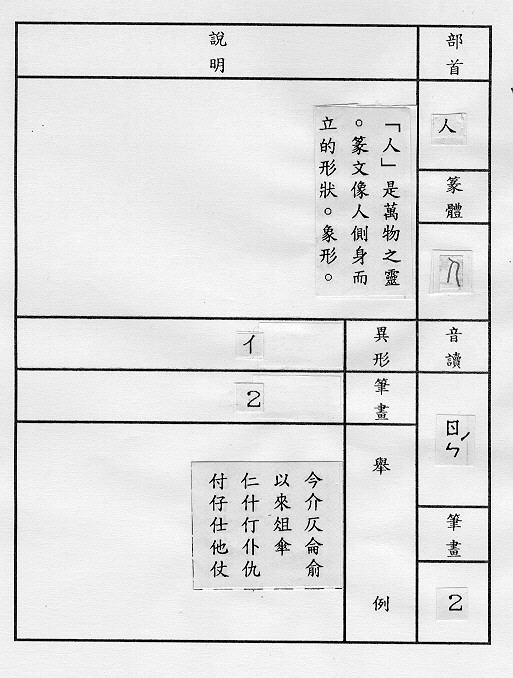 部首
人
篆體
音讀
ㄖㄣˊ
筆畫
2
說明
「人」是萬物之靈
。篆文像人側身而
立的形狀。象形。
異形
亻
筆畫
2
舉例
今介仄侖俞
以來俎傘
仁什仃仆仇
付仔仕他仗